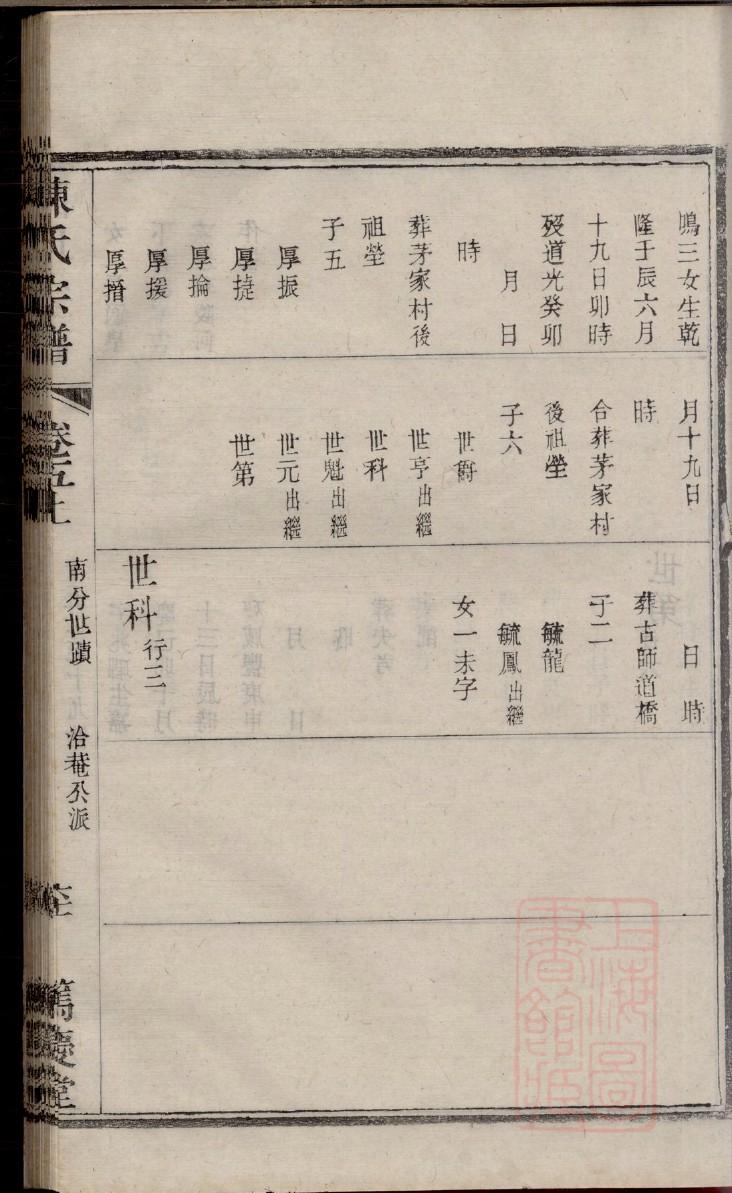 鳴三女生乾
隆壬辰六月
十九日卯時
歿道光癸卯
月 日
時
葬茅家村後
祖塋
子五
厚振
厚㨗
厚掄
厚援
厚搢
月十九日
時
合葬茅家村
後祖塋
子六
世爵
世亨出繼
世科
世魁出繼
世元出繼
世第
日 時
葬古師道橋
子二
毓龍
毓鳳出繼
女一未字
世科行三
陳氏宗譜
卷五上
南分世蹟 洽菴公派
篤慶堂
上海圖書館藏